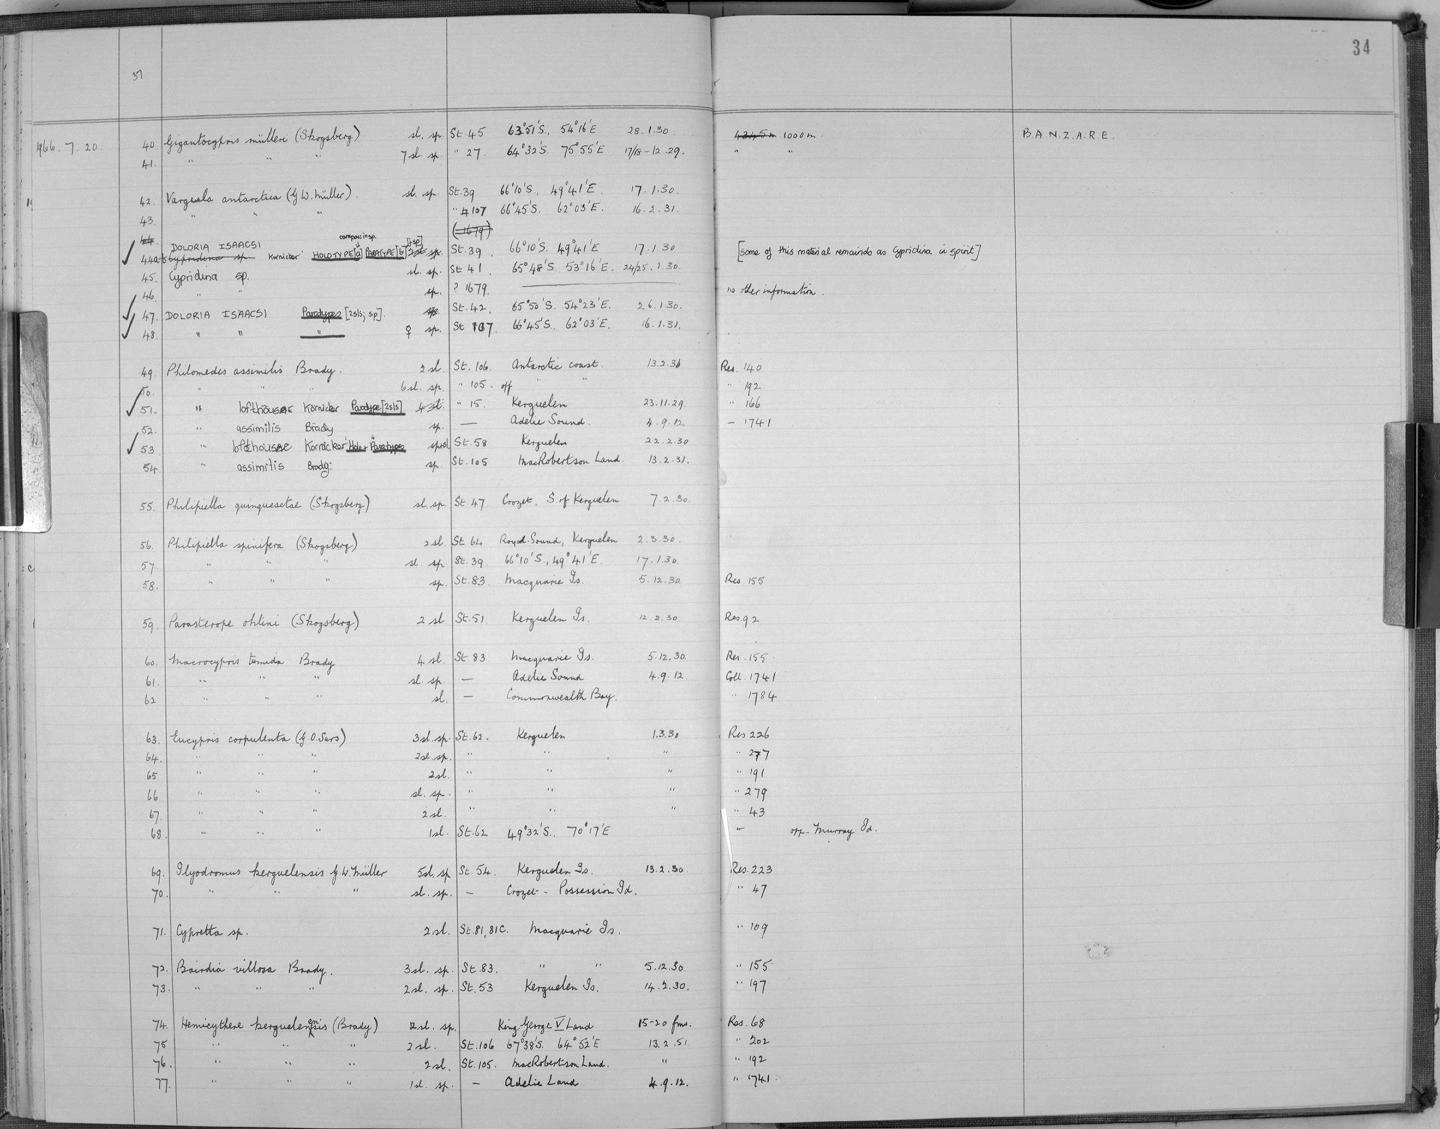 34
37
1966. 7. 20. 40. Gigantocypris mülleri (Skogsberg) sl. sp. St. 45 63°51'S, 54°16'E 28.1.30. 1000 m. B.A.N.Z.A.R.E.
41. " " " 7 sl. sp " 27. 64°32'S. 75°55'E 17/18-12.29. " "
42. Vargula antarctica (G.W. Müller). sl. sp. St. 39 66°10'S, 49°41'E 17.1.30.
43. " " " " 107 66°45'S. 62°03'E. 16.2.31.
44. (1679)
DOLORIA ISAACSI
Cypridina sp. Kornicker HOLOTYPE[a] PARATYPE[b] sp. St. 39 66°10'S. 49°41'E 17.1.30 [some of this material remainds as Cypridina in spirit]
45. Cypridina sp. sl. sp. St 41. 65°48'S. 53°16'E. 24/25.1.30.
46. " " sp. ? 1679. no other information.
47. DOLORIA ISAACSI Paratypes [2sls; sp]. St. 42. 65°50'S. 54°23'E. 26.1.30.
48. " " " ♀ sp. St 107. 66°45'S. 62°03'E. 16.1.31.
49. Philomedes assimilis Brady. 2 sl. St. 106. Antarctic coast 13.2.31 Res. 140
50. " " " 6 sl. sp. " 105. off " " " 192
51. " lofthousae Kornicker Paratype [2sls] " 15. Kerguelen 23.11.29. " 166
52. " assimilis Brady sp. — Adelie Sound. 4.9.12. – 1741
53. " lofthousae Kornicker Holo- Paratypes spsl St. 58 Kerguelen 22.2.30
54. " assimilis Brady. sp. St. 105 MacRobertson Land. 13.2.31.
55. Philipiella quinquesetae (Skogsberg) sl. sp. St. 47 Crozet. S. of Kerguelen 7.2.30.
56. Philipiella spinifera (Skogsberg) 2 sl. St. 64 Royal Sound, Kerguelen 2.3.30.
57. " " " sl. sp. St. 39. 66°10'S, 49°41'E. 17.1.30.
58. " " " sp. St. 83. Macquarie Is. 5.12.30. Res. 155
59. Parasterope ohlini (Skogsberg) 2 sl. St. 51 Kerguelen Is. 12.2.30. Res. 92
60. Macrocypris tumida Brady 4 sl. St. 83 Macquarie Is. 5.12.30. Res. 155
61. " " " sl. sp. — Adelie Sound 4.9.12. Coll. 1741
62 " " " sl. — Commonwealth Bay. " 1784
63. Eucypris corpulenta (G.O. Sars) 3 sl. sp. St. 62. Kerguelen 1.3.30 Res 226
64. " " " 2 sl. sp. " " " " 277
65 " " " 2 sl. " " " " 191
66 " " " sl. sp. " " " " 279
67. " " " 2 sl. " " " " 43
68. " " " 1 sl. St. 62 49°32'S., 70°17'E – opp. Murray Id.
69. Ilyodromus kerguelensis G.W. Müller 5 sl. sp St. 54. Kerguelen Is. 13.2.30. Res. 223
70. " " " sl. sp. — Crozet – Possession Id. " 47
71. Cypretta sp. 2 sl. St. 81, 81C. Macquarie Is. " 109
72. Bairdia villosa Brady. 3 sl. sp. St. 83. " " 5.12.30 " 155
73. " " " 2 sl. sp. St. 53 Kerguelen Is. 14.2.30. " 197
74. Hemicythere kerguelensis (Brady) 2 sl. sp. King George V Land 15-20 fms. Res. 68
75 " " " 2 sl. St. 106 67°38'S. 64°52'E 13.2.51 " 202
76. " " " 2 sl. St. 105. MacRobertson Land. " " 192
77. " " " 1 sl. sp. — Adelie Land 4.9.12. " 1741